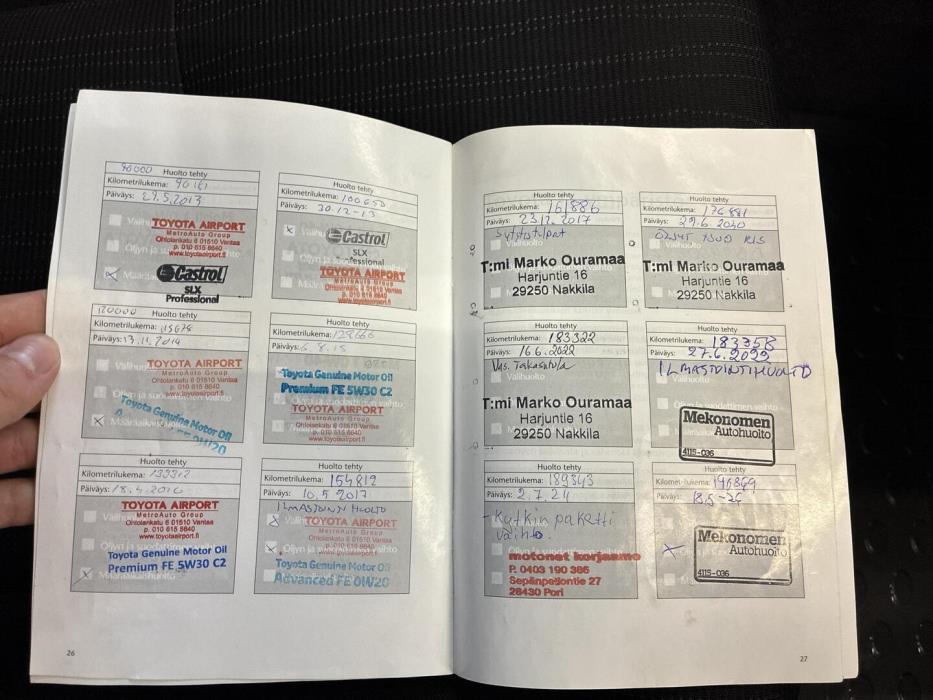 90000 Huolto tehty
Kilometrilukema: 90181
Päiväys: 29.5.2013
TOYOTA AIRPORT
MetroAuto Group
Ohtolankatu 6 01510 Vantaa
p. 010 615 8640
www.toyotaairport.fi
Castrol
SLX
Professional
Huolto tehty
Kilometrilukema: 100650
Päiväys: 30.12-13
Castrol
SLX
Professional
TOYOTA AIRPORT
MetroAuto Group
Ohtolankatu 6 01510 Vantaa
p. 010 615 8640
www.toyotaairport.fi
120000 Huolto tehty
Kilometrilukema: 115678
Päiväys: 13.11.2014
TOYOTA AIRPORT
MetroAuto Group
Ohtolankatu 6 01510 Vantaa
p. 010 615 8640
www.toyotaairport.fi
Toyota Genuine Motor Oil
Huolto tehty
Kilometrilukema:
Päiväys: 6.8.15
Toyota Genuine Motor Oil
Premium FE 5W30 C2
TOYOTA AIRPORT
MetroAuto Group
Ohtolankatu 6 01510 Vantaa
p. 010 615 8640
www.toyotaairport.fi
Huolto tehty
Kilometrilukema: 133312
Päiväys: 18.4.2016
TOYOTA AIRPORT
MetroAuto Group
Ohtolankatu 6 01510 Vantaa
p. 010 615 8640
www.toyotaairport.fi
Toyota Genuine Motor Oil
Premium FE 5W30 C2
Huolto tehty
Kilometrilukema: 154812
Päiväys: 10.5 2017
ILMASTOINTI HUOLTO
TOYOTA AIRPORT
MetroAuto Group
Ohtolankatu 6 01510 Vantaa
p. 010 615 8640
www.toyotaairport.fi
Toyota Genuine Motor Oil
Advanced FE 0W20
26
Huolto tehty
Kilometrilukema: 161886
Päiväys: 23.12.2017
Sytytystulpat
T:mi Marko Ouramaa
Harjuntie 16
29250 Nakkila
Huolto tehty
Kilometrilukema: 176881
Päiväys: 29.6.2020
T:mi Marko Ouramaa
Harjuntie 16
29250 Nakkila
Huolto tehty
Kilometrilukema: 183322
Päiväys: 16.6.2022
Vas. Takasatula
T:mi Marko Ouramaa
Harjuntie 16
29250 Nakkila
Huolto tehty
Kilometrilukema: 183358
Päiväys: 27.6.2022
ILMASTOINTIHUOLTO
Mekonomen
Autohuolto
4115-036
Huolto tehty
Kilometrilukema: 189343
Päiväys: 2.7.24
- Kytkin paketti
vaihto.
motonet korjaamo
P. 0403 190 386
Sepänpellontie 27
28430 Pori
Huolto tehty
Kilometrilukema:
Päiväys:
Mekonomen
Autohuolto
4115-036
27